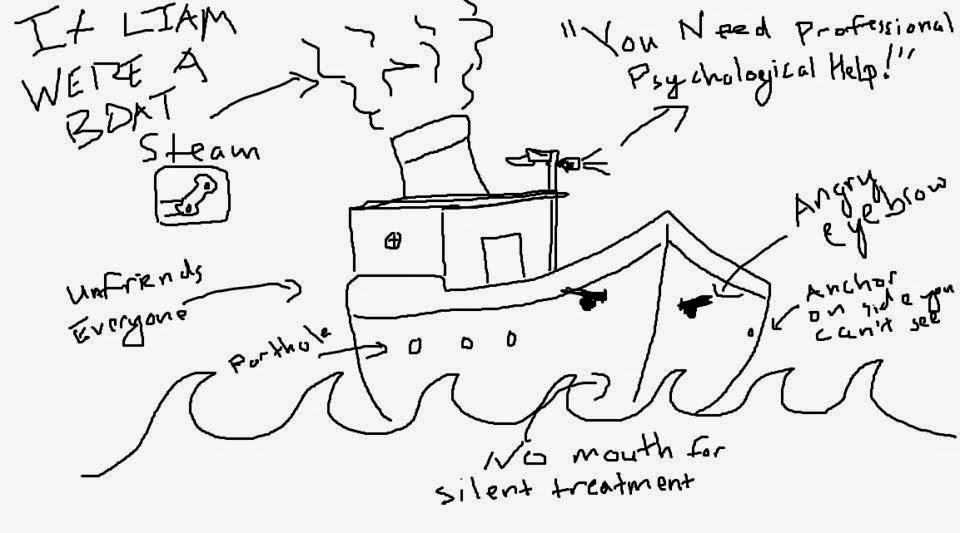 If LIAM
WERE A
BOAT
"You Need Professional
Psychological Help!"
Steam
Angry
eyebrow
Unfriends
Everyone
Anchor
on side you
can't see
Porthole
No mouth for
silent treatment